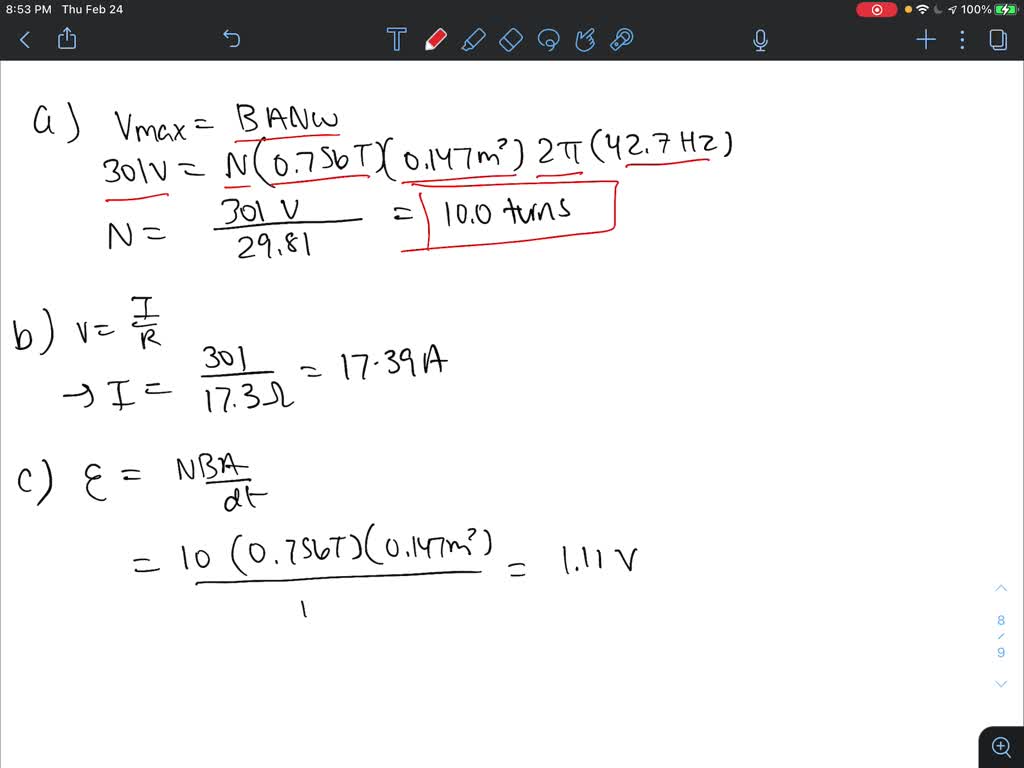 8:53 PM Thu Feb 24
100%
a) Vmax = BANω
301V = N(0.756T)(0.147m²) 2π (42.7Hz)
N = 301 V / 29.81 = 10.0 turns
b) V = I/R
→ I = 301 / 17.3Ω = 17.39A
c) ε = NBA / dt
= 10 (0.756T)(0.147m²) / 1 = 1.11 V
8
/
9